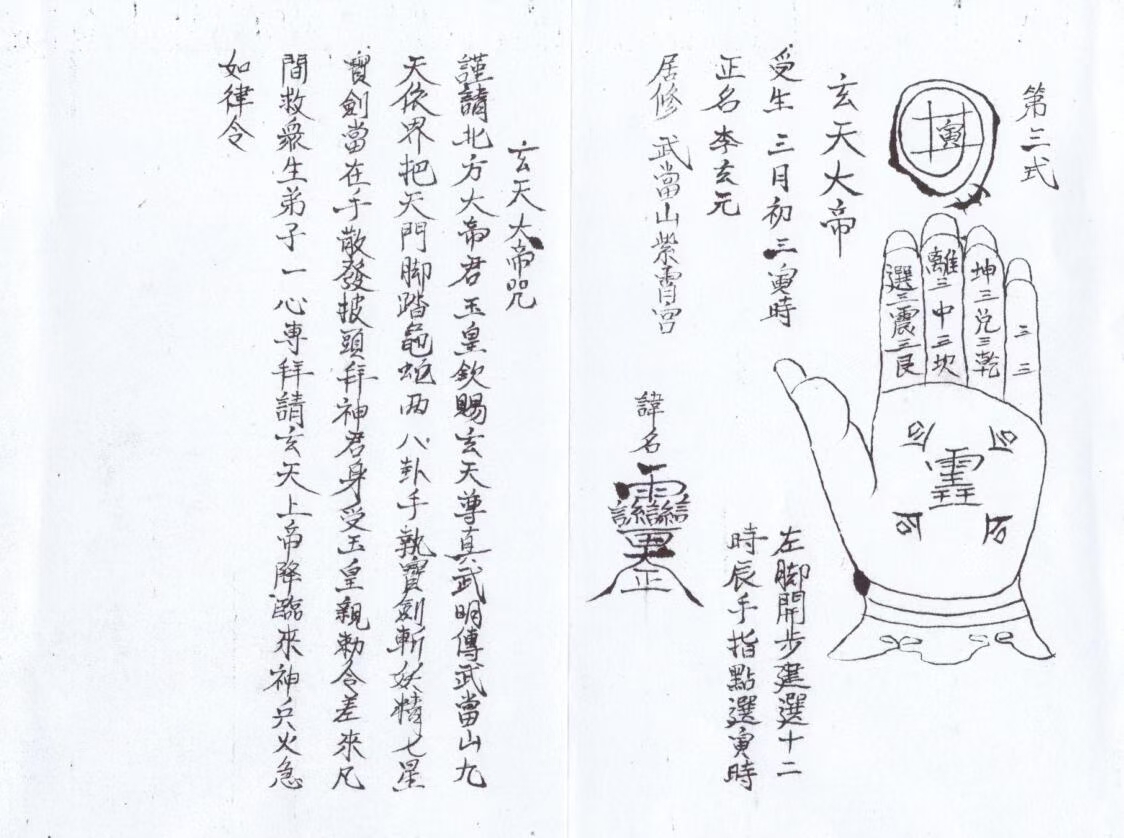 第三式
寅
選三震三艮
離三中三坎
坤三兌三乾
三 三三
玄天大帝
受生三月初三寅時
正名李玄元
居修武當山紫霄宮
諱名
正
左脚開步建選十二
時辰手指點選寅時
玄天大帝咒
謹請北方大帝君玉皇欽賜玄天尊真武明傳武當山九
天依界把天門脚踏龜蛇両八卦手執寶劍斬妖精七星
寶劍當在手散發披頭拜神君身受玉皇親勅令差來凡
間救衆生弟子一心專拜請玄天上帝降臨來神兵火急
如律令